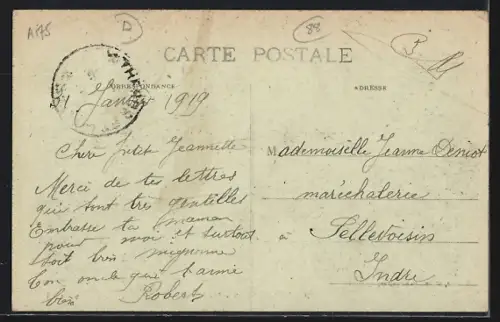 A175
D
88
CARTE POSTALE
CORRESPONDANCE
ADRESSE
Janvier 1919
Chère petite Jeannette
Merci de tes lettres
qui sont très gentilles
Embrasse ta maman
pour moi et surtout
soit bien mignonne
Ton oncle qui t'aime
bien
Robert
Mademoiselle Jeanne Deniot
maréchalerie
à Pellevoisin
Indre